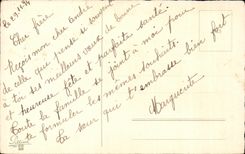 Cher frère
Reçois mon cher André
de celle qui pense se souvient
à toi ses meilleurs vœux de bonne
et heureuse fête et parfaite santé
Toute la famille se joint à moi pour
te formuler les mêmes souhaits.
Ta sœur qui t'embrasse bien fort
Marguerite